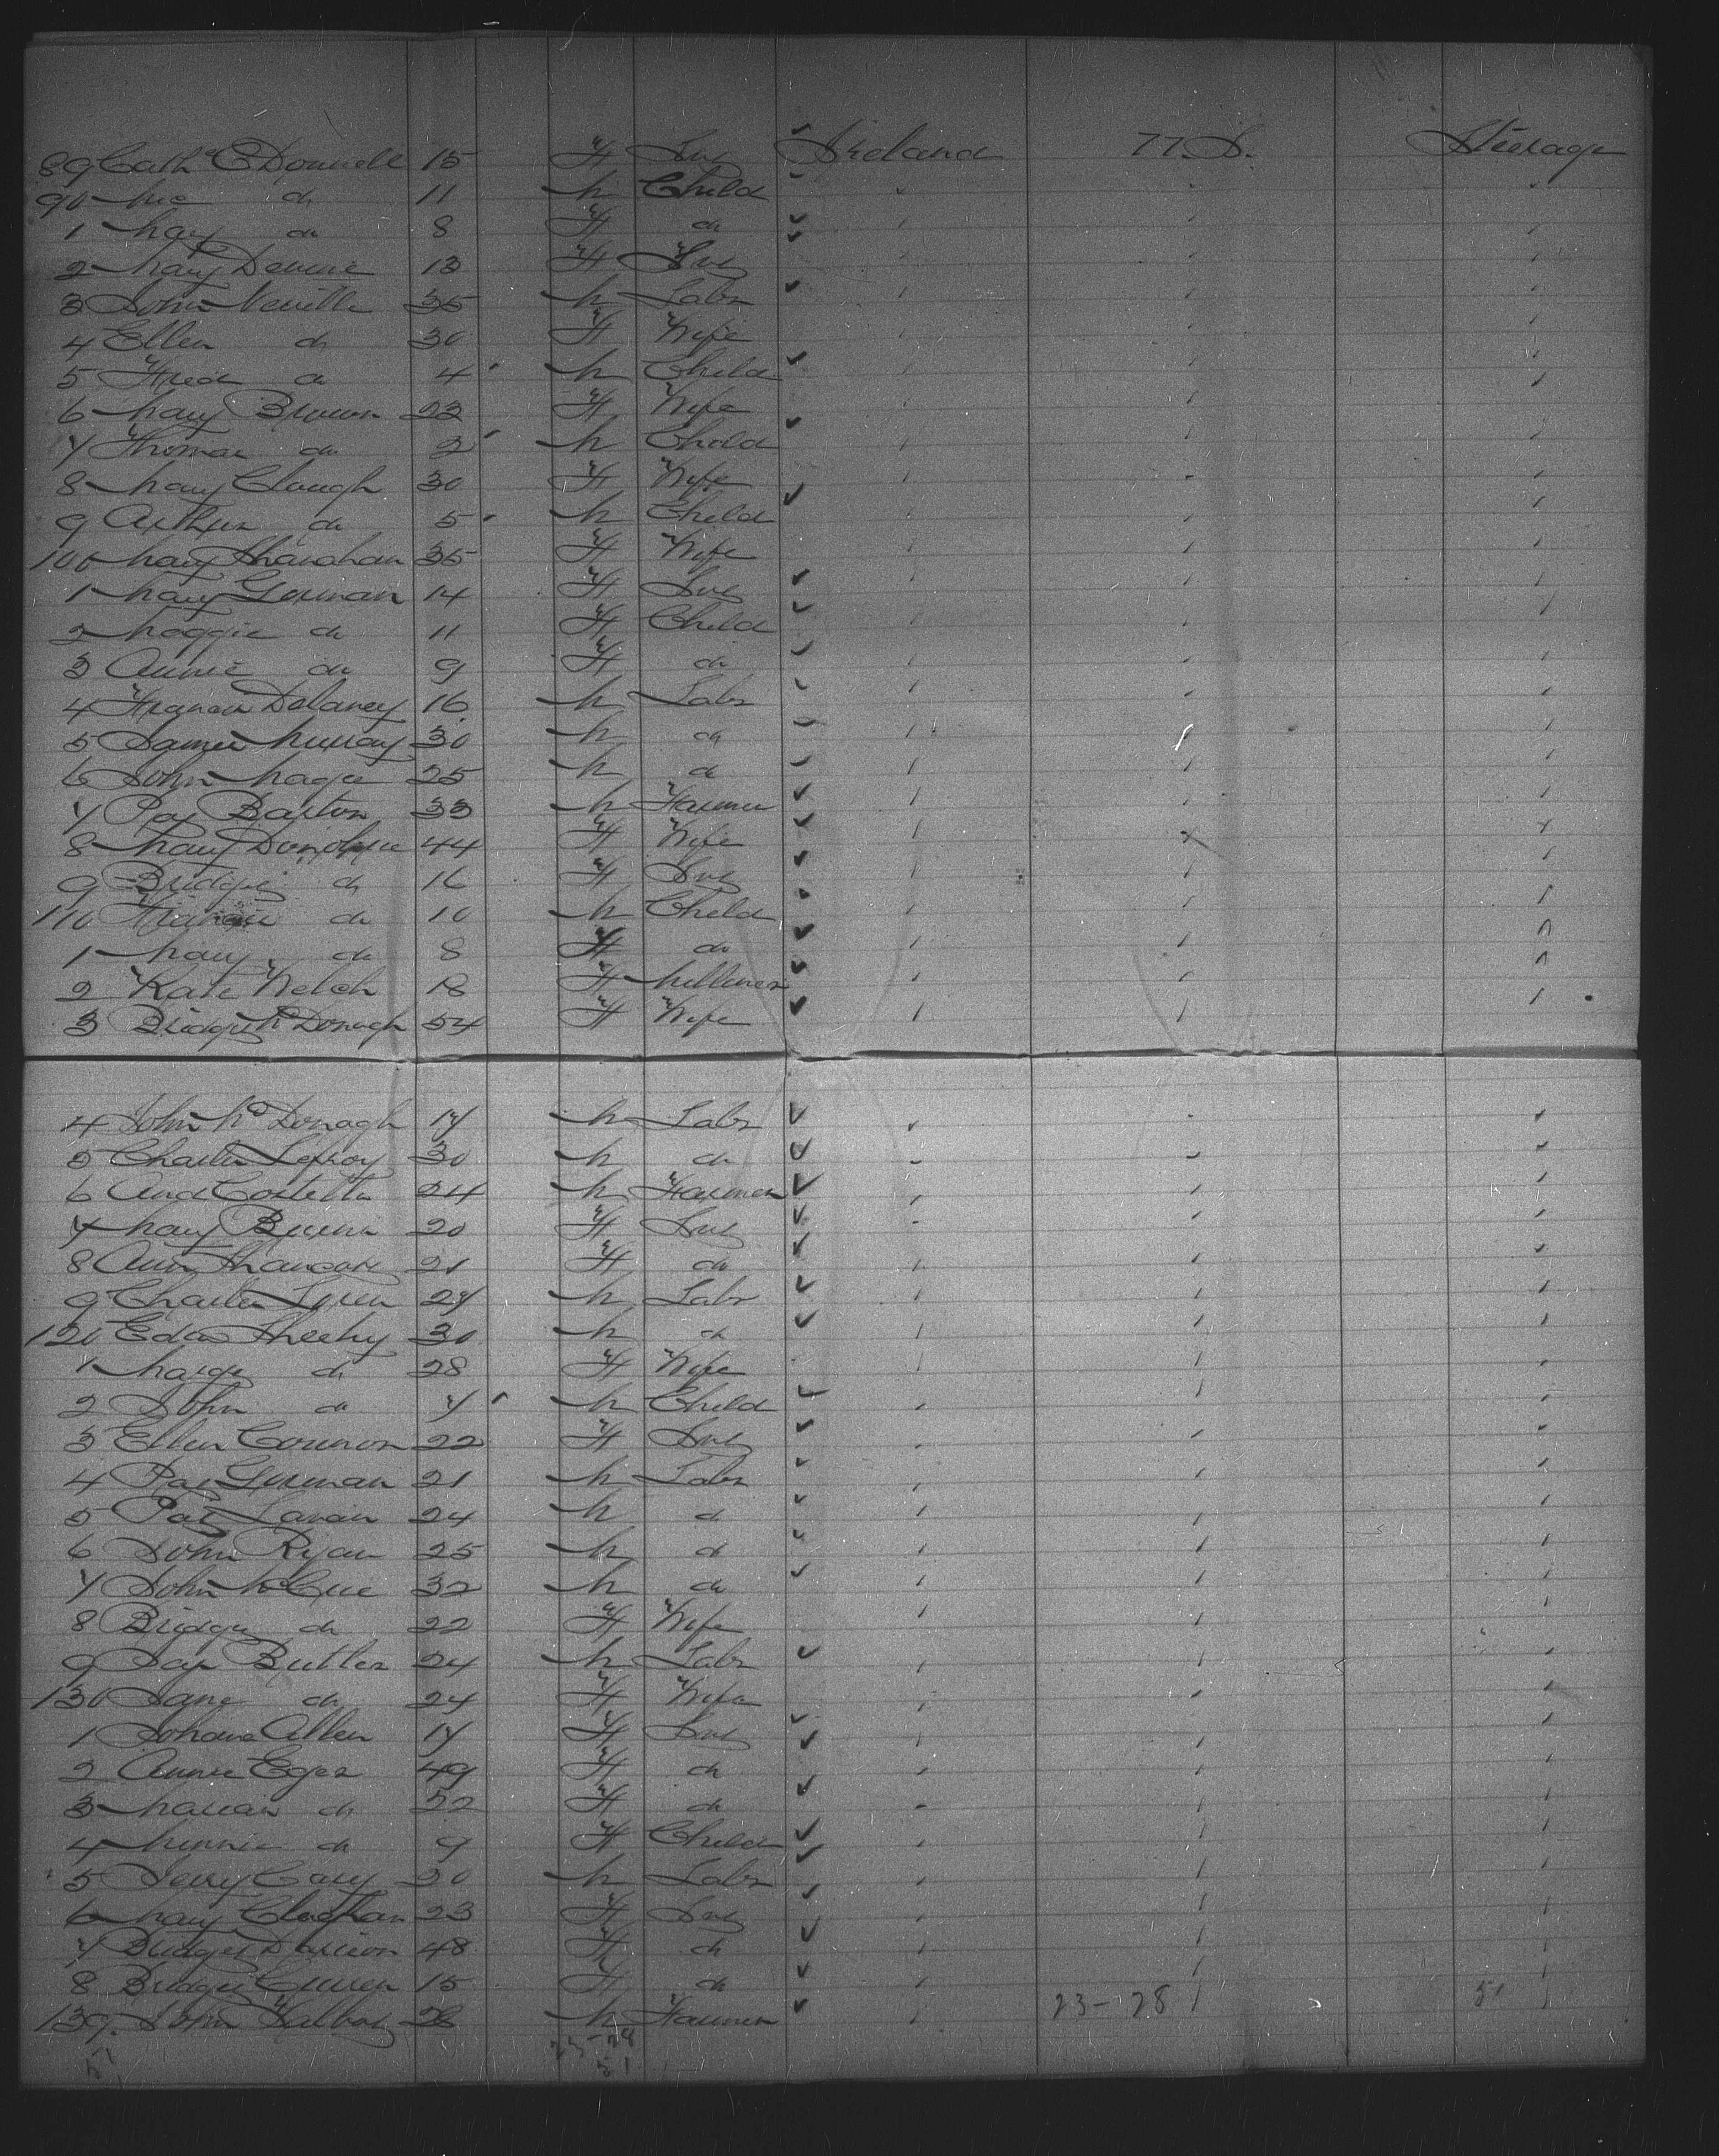 89 Cath O'Donnell 15 F Svt Ireland U.S. Steerage
90 Mic do 11 M Child
1 Mary do 8 F do
2 Mary 13 F Svt
3 John Neville 35 M Labr
4 Ellen do 30 F Wife
5 Fred do 4 M Child
6 Mary Brown 22 F Wife
7 Thomas do 2 M Child
8 Mary Clough 30 F Wife
9 Arthur do 5 M Child
100 Mary Shanahan 35 F Wife
1 Mary Gorman 14 F Svt
2 Maggie do 11 F Child
3 Annie do 9 F do
4 Francis Delaney 16 M Labr
5 James Murray 30 M do
6 John Magee 25 M do
7 Pat Barton 33 M Farmer
8 Mary Donohue 44 F Wife
9 Bridget do 16 F Svt
110 Francis do 10 M Child
1 Mary do 8 F do
2 Kate Welch 18 F Milliner
3 Bridget McDonagh 54 F Wife
4 John McDonagh 17 M Labr
5 Charles Leroy 30 M do
6 And Costello 24 M Farmer
7 Mary 20 F Svt
8 Ann 21 F do
9 Charles 27 M Labr
120 Edw Sheehy 30 M do
1 Margt do 28 F Wife
2 John do 7 M Child
3 Ellen Connon 22 F Svt
4 Pat Gorman 21 M Labr
5 Pat Lavan 24 M do
6 John Ryan 25 M do
7 John McCue 32 M do
8 Bridget do 22 F Wife
9 Jas Butler 24 M Labr
130 Jane do 24 F Wife
1 Johana Allen 17 F Svt
2 Annie Eger 49 F do
3 Marian do 22 F do
4 Minnie do 9 F Child
5 Jerry Cary 20 M Labr
6 Mary 23 F Svt
7 Bridget 48 F do
8 Bridget 15 F do
139 John Talbot 28 M Farmer 23-28 51
51 23-28
51